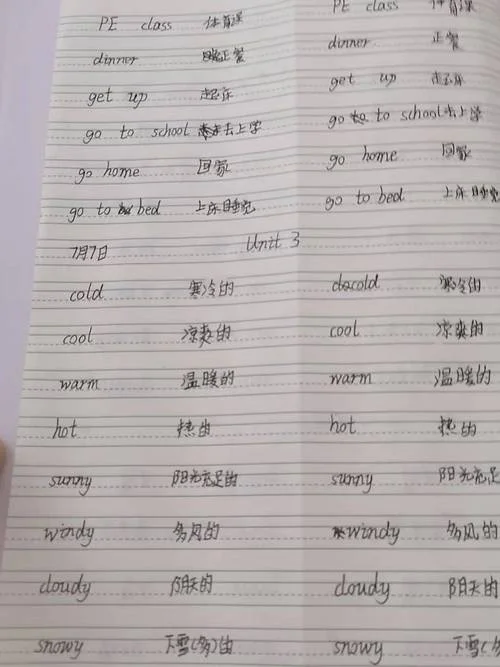 PE class 体育课 PE class 体育课
dinner 正餐 dinner 正餐
get up 起床 get up 起床
go to school 去上学 go to school 去上学
go home 回家 go home 回家
go to bed 上床睡觉 go to bed 上床睡觉
7月7日 Unit 3
cold 寒冷的 cold 寒冷的
cool 凉爽的 cool 凉爽的
warm 温暖的 warm 温暖的
hot 热的 hot 热的
sunny 阳光充足的 sunny 阳光充足
windy 多风的 windy 多风的
cloudy 阴天的 cloudy 阴天的
snowy 下雪(多)的 snowy 下雪(多